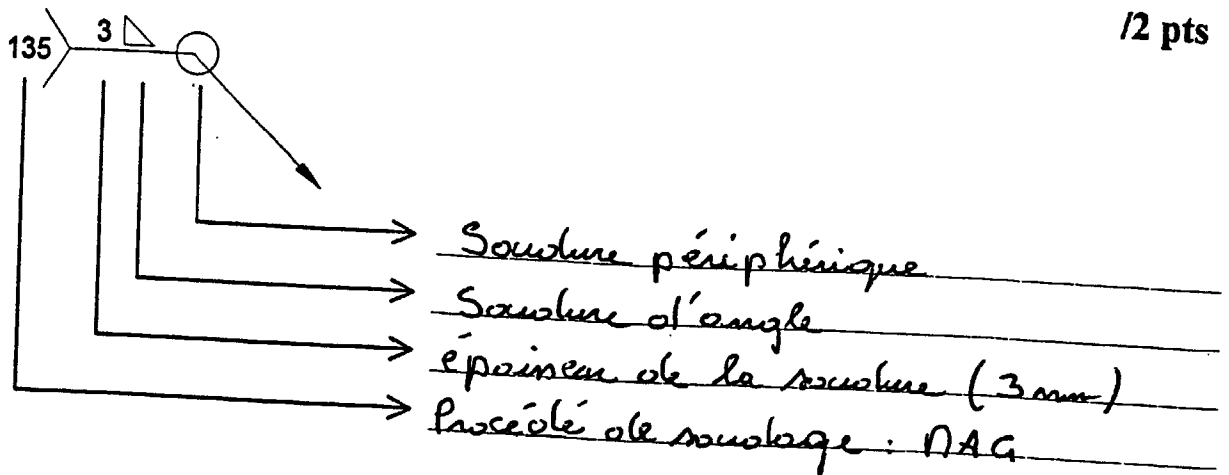 /2 pts
135 3
Soudure périphérique
Soudure d'angle
épaisseur de la soudure (3 mm)
Procédé de soudage : MAG